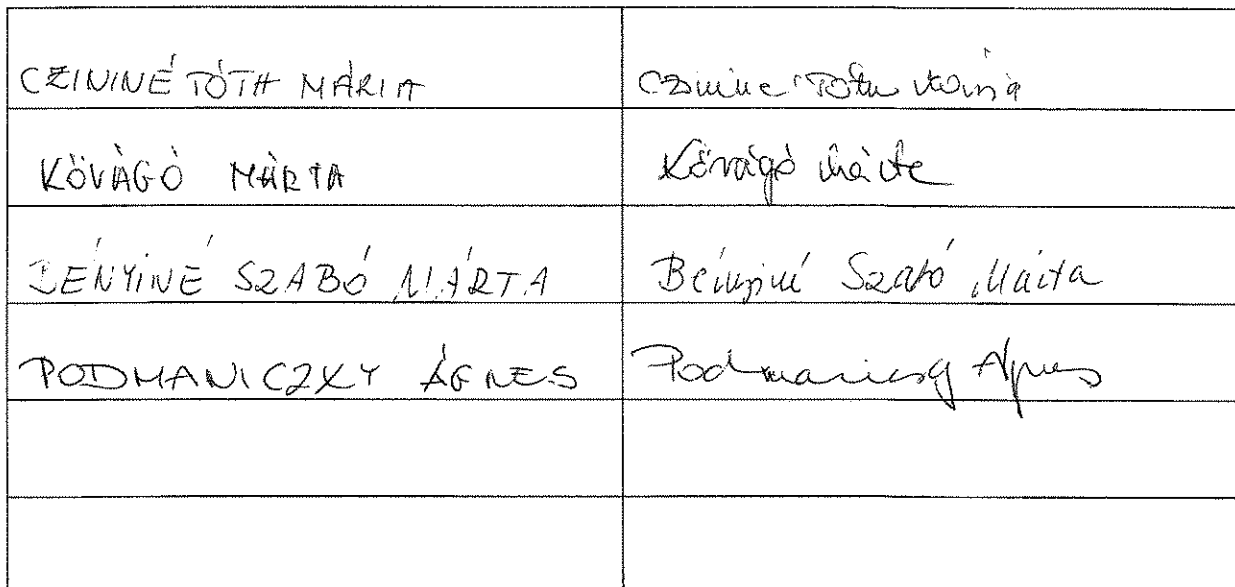 CZININÉ TÓTH MÁRIA Czininé Tóth Mária
KŐVÁGÓ MÁRTA Kővágó Márta
BÉNYINÉ SZABÓ MÁRTA Bényiné Szabó Márta
PODMANICZKY ÁGNES Podmaniczky Ágnes